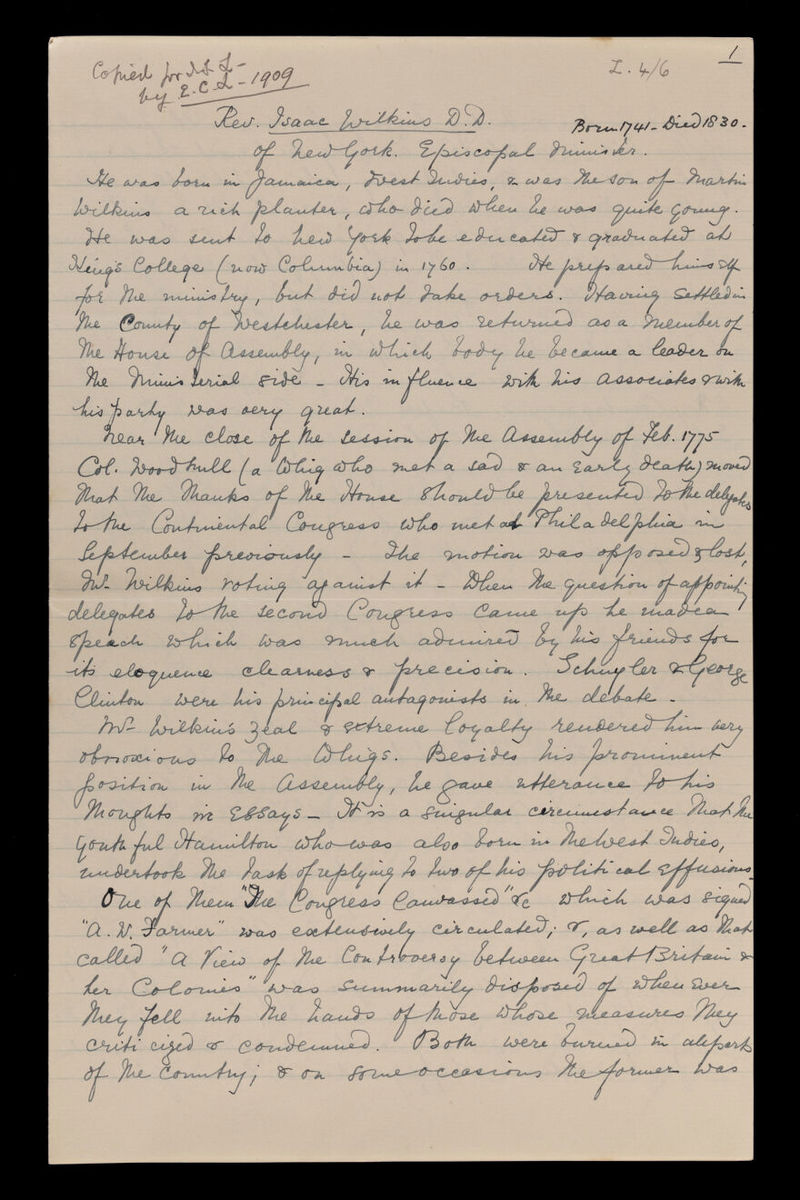 1
Copied for
by E.C.L - 1909
L. 4/6
Rev. Isaac Wilkins D.D.
Born 1741 - Died 1830.
of New York. Episcopal Minister.
He was born in Jamaica, West Indies, & was the son of Martin
Wilkins a rich planter, who died when he was quite young.
He was sent to New York to be educated & graduated at
King's College (now Columbia) in 1760. He prepared himself
for the ministry, but did not take orders. Having settled in
the County of Westchester, he was returned as a member of
the House of Assembly, in which body he became a leader on
the Ministerial side - His influence with his associates & with
his party was very great.
Near the close of the session of the Assembly of Feb. 1775
Col. Woodhull (a Whig who met a sad & an early death) moved
that the thanks of the House should be presented to the delegates
to the Continental Congress who met at Philadelphia in
September previously - The motion was opposed & lost,
Mr. Wilkins voting against it - When the question of appointing
delegates to the second Congress came up he made a
speech which was much admired by his friends for
its eloquence clearness & precision. Schuyler & George
Clinton were his principal antagonists in the debate -
Mr. Wilkins zeal & extreme loyalty rendered him very
obnoxious to the Whigs. Besides his prominent
position in the Assembly, he gave utterance to his
thoughts in Essays - It is a singular circumstance that the
youthful Hamilton who was also born in the West Indies,
undertook the task of replying to two of his political effusions.
One of them "The Congress Canvassed" &c which was signed
"A. W. Farmer" was extensively circulated; &, as well as that
called "A View of the Controversy between Great Britain &
her Colonies" was summarily disposed of when ever
they fell into the hands of those whose measures they
criticized & condemned. Both were burned in all parts
of the country; & on some occasions the former was